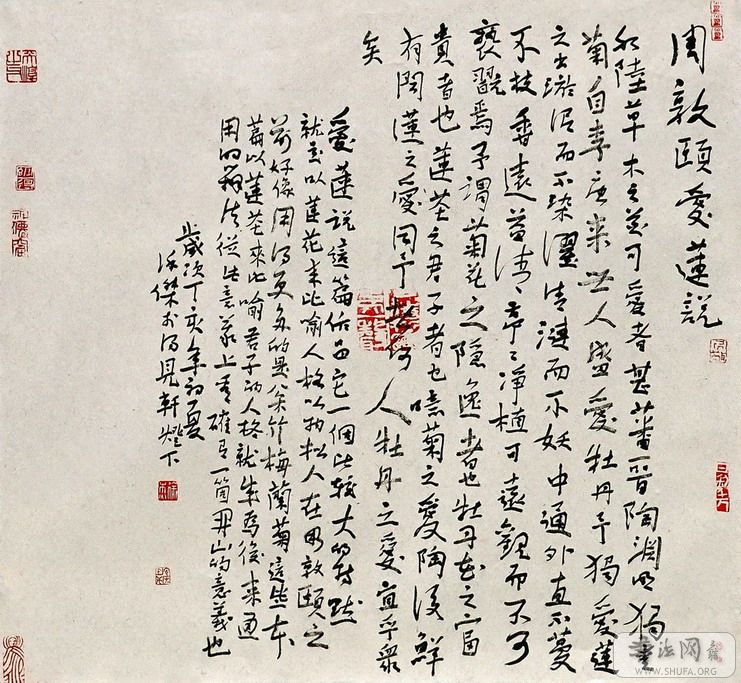 周敦頤愛蓮說
水陸草木之花可愛者甚蕃晉陶淵明獨愛
菊自李唐來世人盛愛牡丹予獨愛蓮
之出淤泥而不染濯清漣而不妖中通外直不蔓
不枝香遠益清亭亭淨植可遠觀而不可
褻翫焉予謂菊花之隱逸者也牡丹花之富
貴者也蓮花之君子者也噫菊之愛陶後鮮
有聞蓮之愛同予者何人牡丹之愛宜乎眾
矣
愛蓮說這篇作品它一個比較大的特點
就是以蓮花來比喻人格以物擬人在周敦頤之
前好像用得更多的是松竹梅蘭菊這些本
篇以蓮花來比喻君子的人格就成為後來通
用的 法從此意義上看確有一箇開山的意義也
歲次丁亥年初夏
傑於得見軒燈下
书法网
WWW.SHUFA.ORG